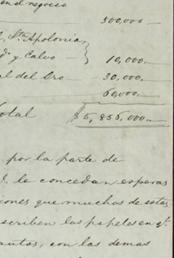 en el negocio
300,000 —
, Sta. Apolonia,
di y Calvo } 10,000. —
al del Oro — 30.000. —
60,000. —
Total $5,855,000. —
por la parte de
le concedan esperas
ciones que muchos de estas
scriben los papeles en q.
autos, con las demas